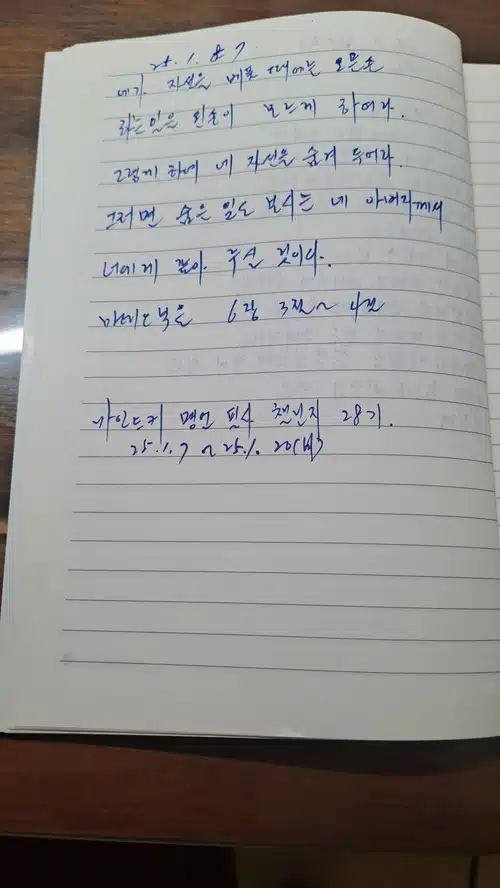 25.1.87
네가 자선을 베풀 때에는 오른손
하는일을 왼손이 모르게 하여라.
그렇게 하여 네 자선을 숨겨 두어라.
그러면 숨은 일도 보시는 네 아버지께서
너에게 갚아 주실 것이다.
마태오복음 6장 3절~4절
명언 필사 챌린지 28기.
25.1.7 ~ 25.1. 20(월)